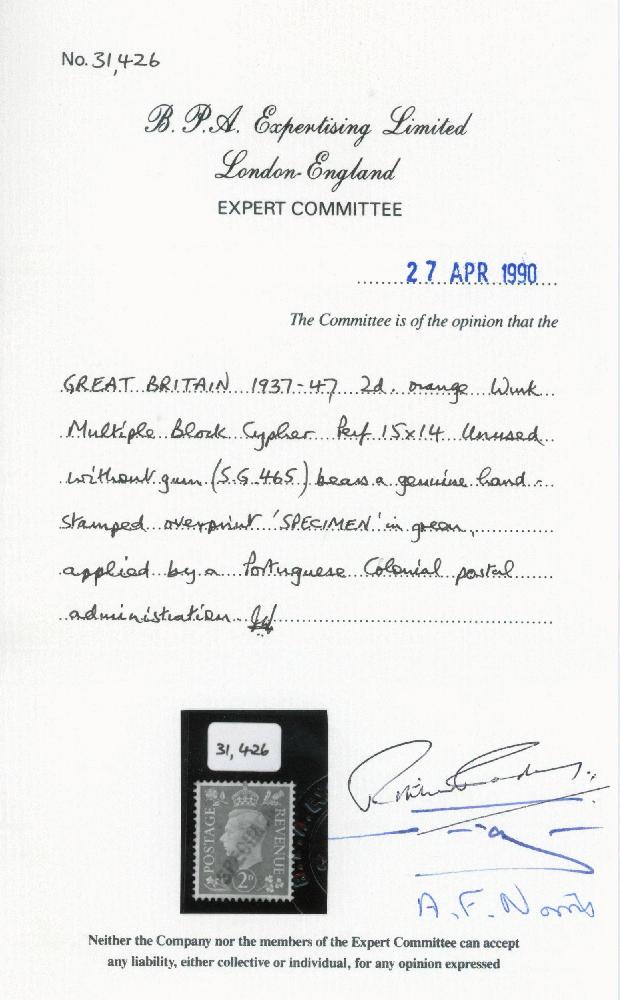 No. 31,426
B. P.A. Expertising Limited
London-England
EXPERT COMMITTEE
27 APR 1990
The Committee is of the opinion that the
GREAT BRITAIN 1937-47 2d. orange Wmk
Multiple Block Cypher Perf 15x14 Unused
without gum (S.G. 465) bears a genuine hand-
stamped overprint 'SPECIMEN' in green,
applied by a Portuguese Colonial postal
administration
31,426
POSTAGE
REVENUE
SPECIMEN
2D
A. F. Norris
Neither the Company nor the members of the Expert Committee can accept
any liability, either collective or individual, for any opinion expressed